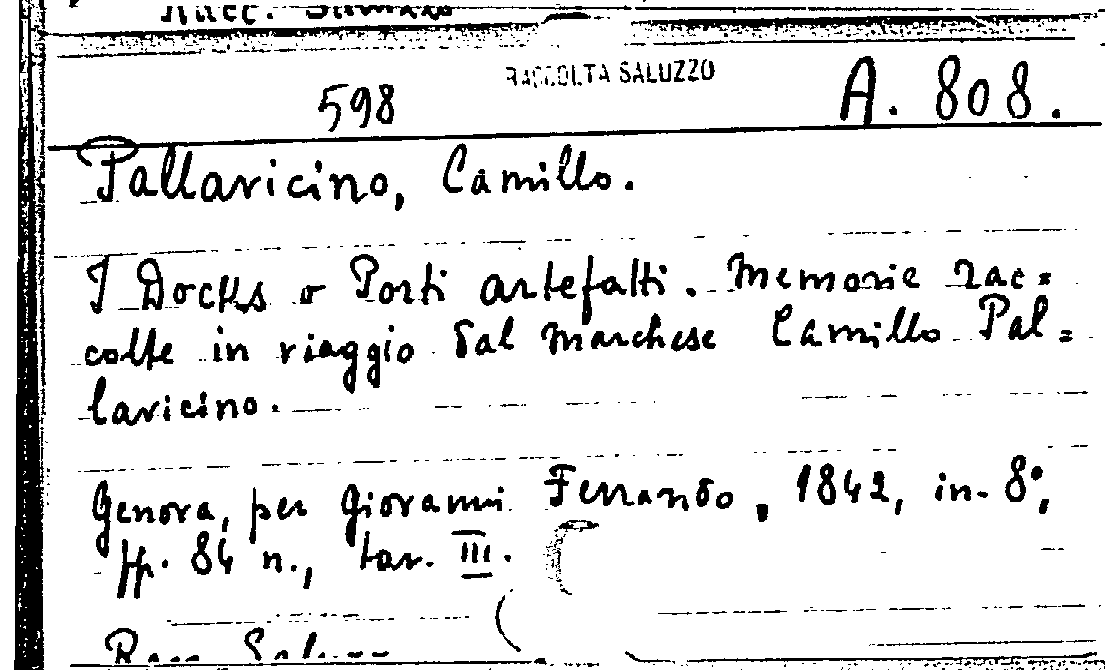 Racc. Saluzzo
RACCOLTA SALUZZO
598 A. 808.
Pallavicino, Camillo.
I Docks o Porti artefatti. Memorie rac=
colte in viaggio dal Marchese Camillo Pal=
lavicino.
Genova, per Giovanni Ferrando, 1842, in-8°,
pp. 84 n., tav. III.
Racc. Saluzzo